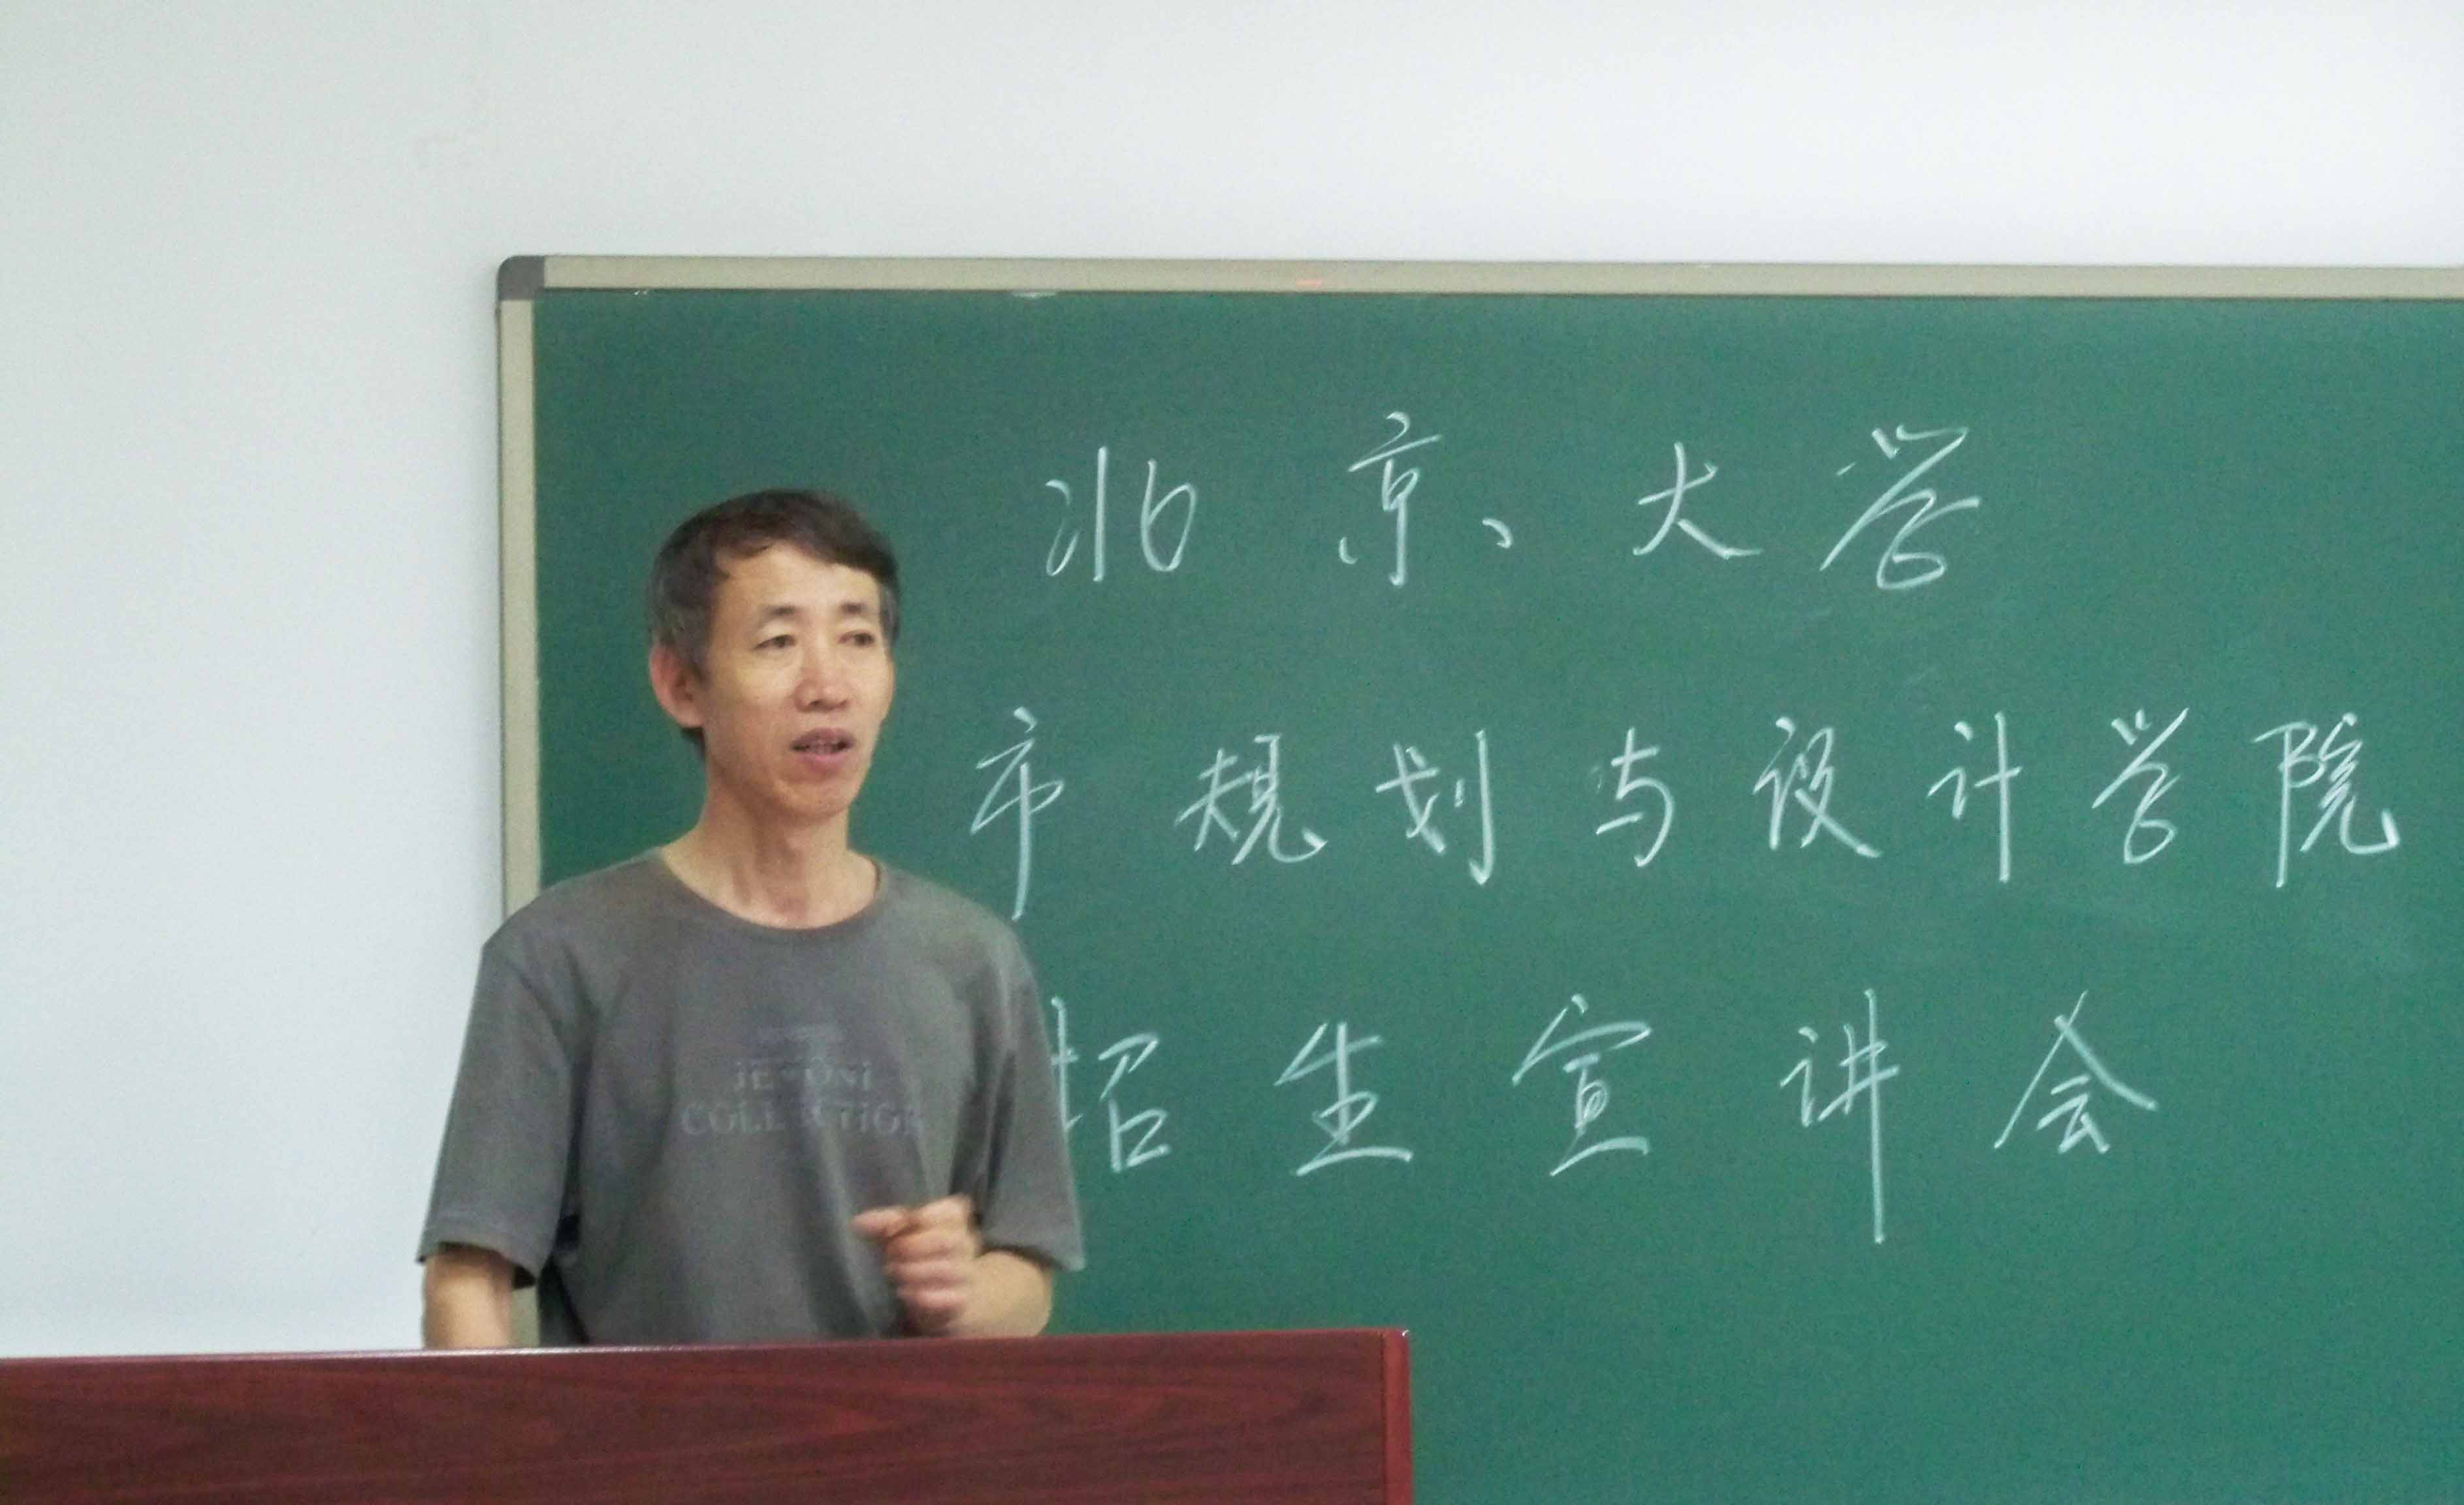 北京大学
市规划与设计学院
招生宣讲会
COLLECTION